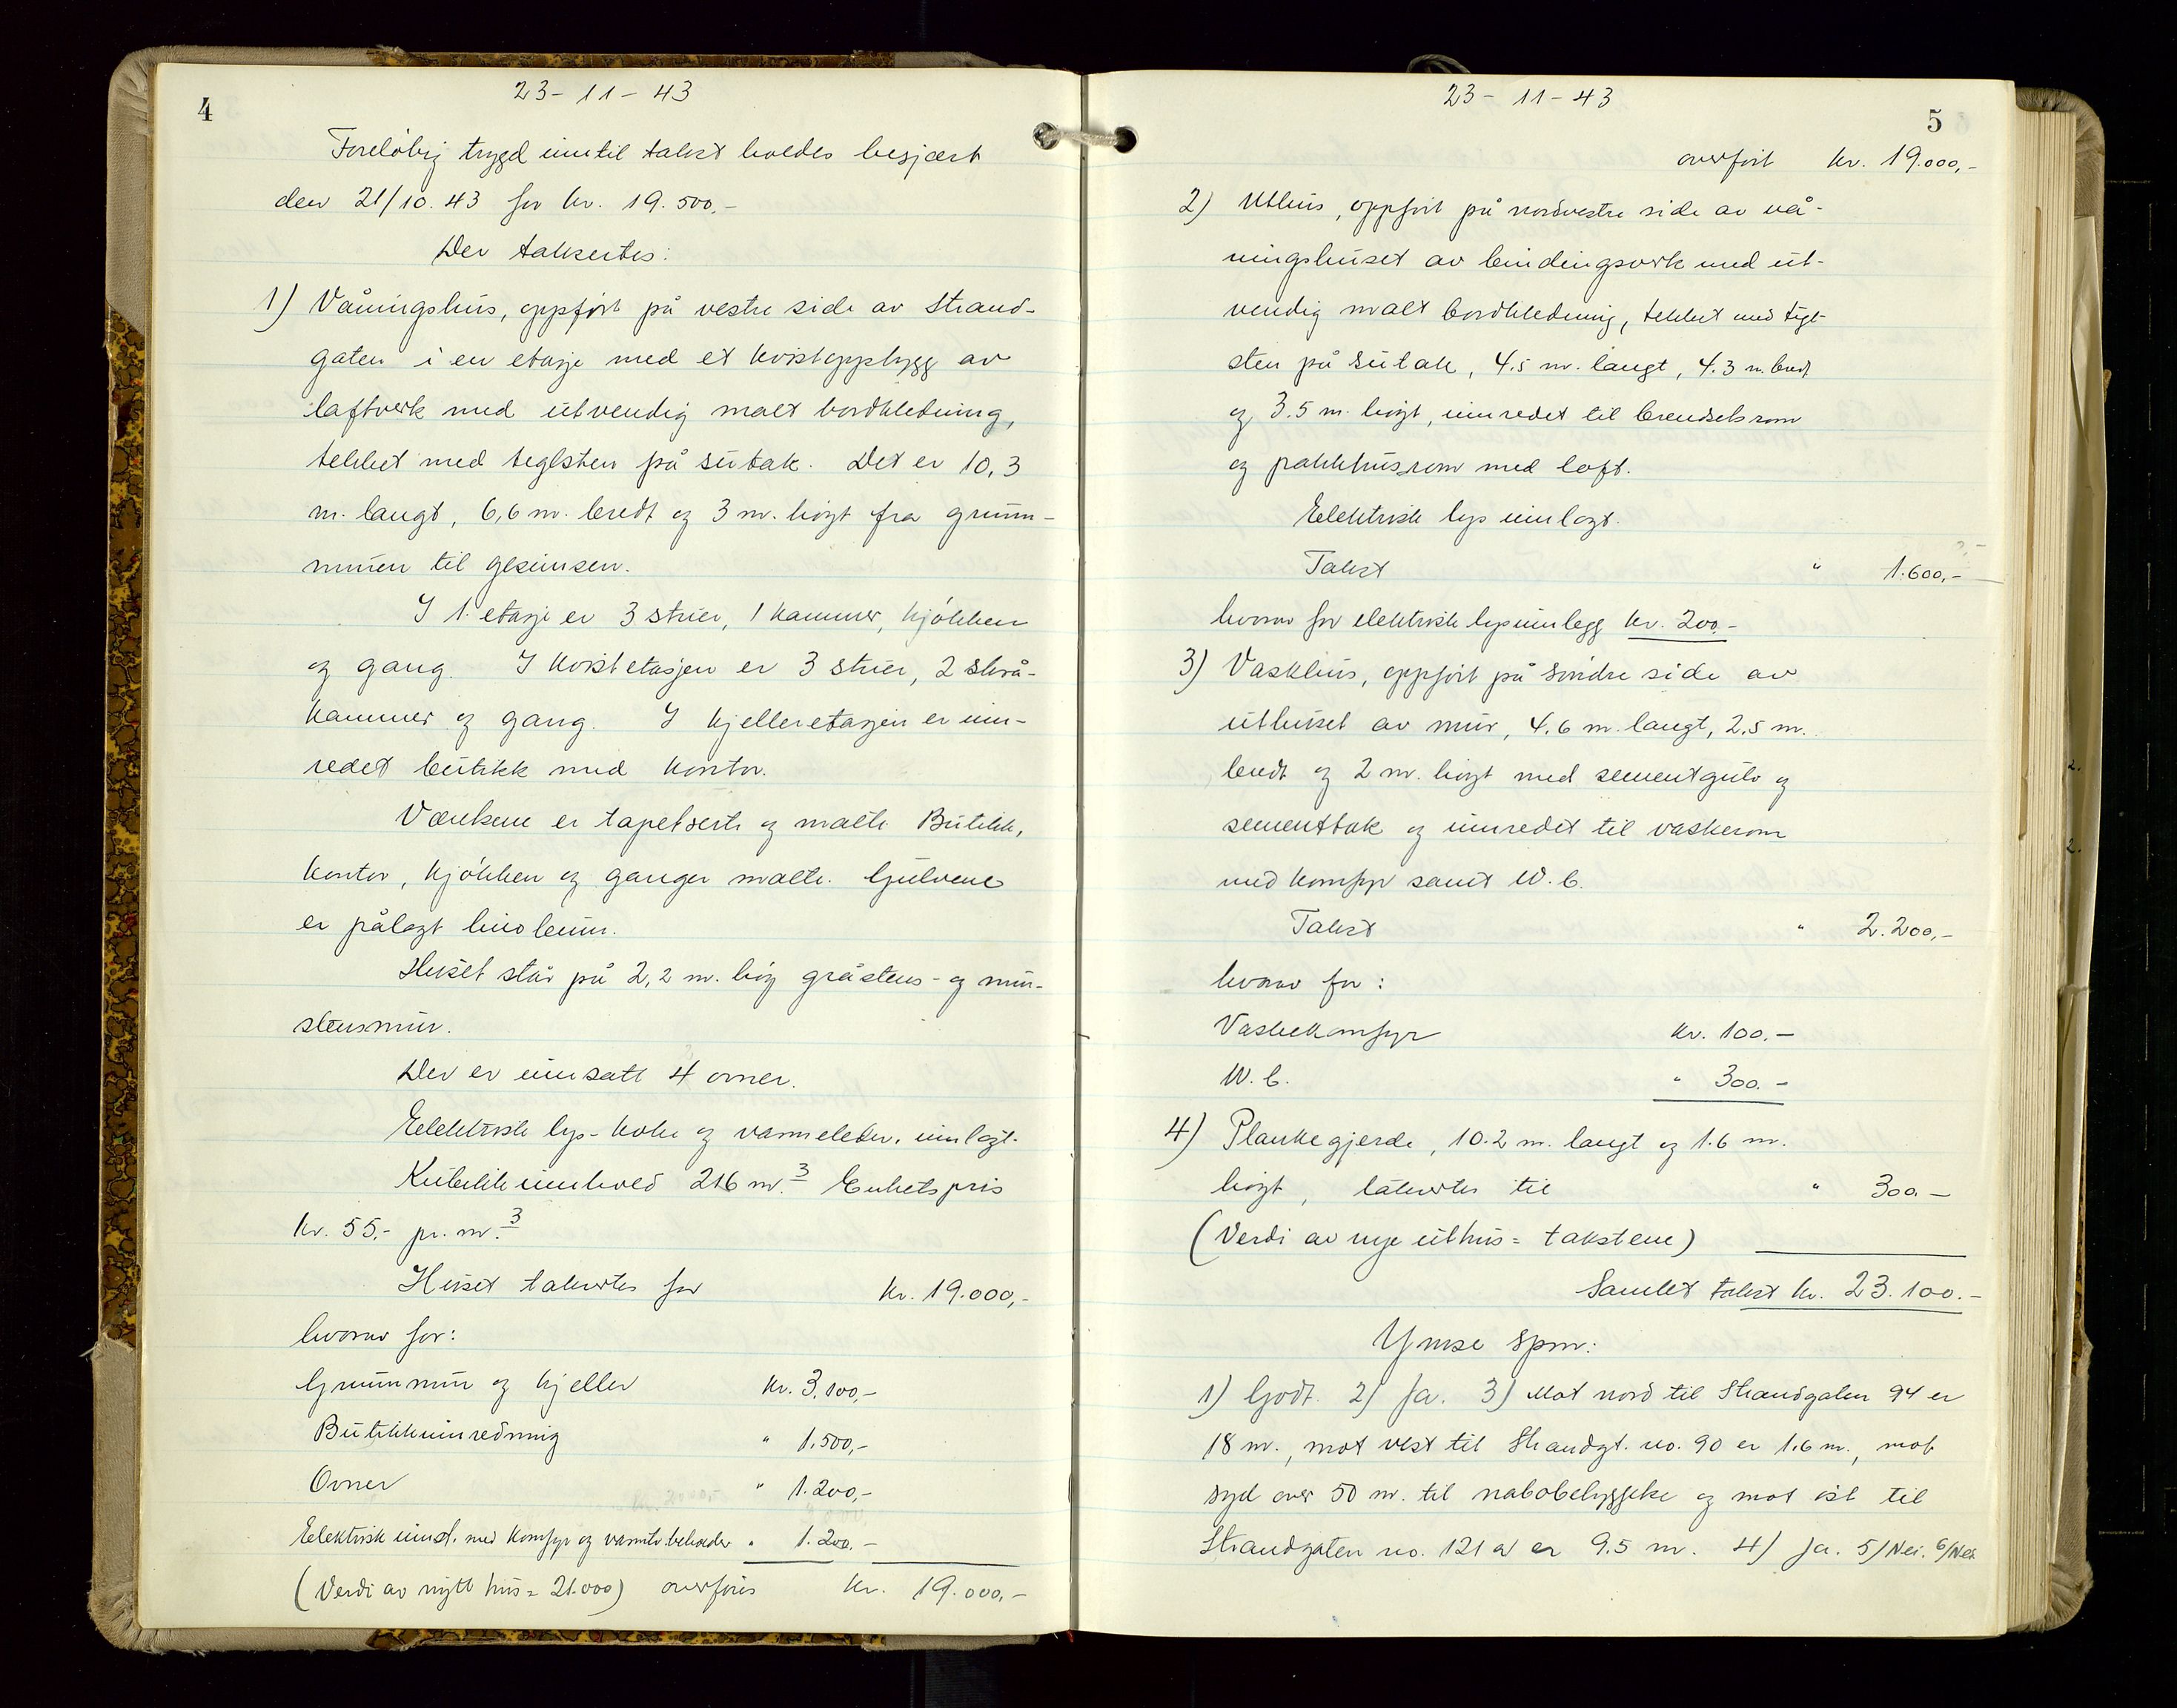 4
23-11-43
Foreløbig trygd inntil takst holdes besjært
den 21/10.43 for kr. 19.500.-
Der taksertes:
1) Våningshus, oppført på vestre side av Strand-
gaten i en etasje med et kvistoppbygg av
laftverk med utvendig malt bordkledning,
tekket med teglsten på sutak. Det er 10,3
m. langt, 6,6 m. bredt og 3 m. høgt fra grunn-
muren til gesimsen.
I 1. etasje er 3 stuer, 1 kammer, kjøkken
og gang. I kvistetasjen er 3 stuer, 2 skrå-
kammer og gang. I kjelleretasjen er inn-
redet butikk med kontor.
Værelsene er tapetserte og malte. Butikk,
kontor, kjøkken og ganger malte. Gulvene
er pålagt linoleum.
Huset står på 2,2 m. høg gråstens- og mur-
stensmur.
Der er innsatt 4 ovner.
Eelektrisk lys- koke og varmeelektr. innlagt.
Kubikkinnhold 216 m.3 Enhetspris
kr. 55.- pr. m.3
Huset takertes for kr. 19.000,-
hvorav for:
Grunnmur og kjeller kr. 3.100,-
Butikkinnredning " 1.500,-
Ovner " 1.200,-
Eelektrisk innst. med komfyr og varmtv.beholder " 1.200.-
(Verdi av nytt hus = 21.000) overføres kr. 19.000,-
23-11-43
5
overført kr. 19.000,-
2) Uthus, oppført på nordvestre side av vå-
ningshuset av bindingsverk med ut-
vendig malt bordkledning, tekket med tegl-
sten på sutak, 4.5 m. langt, 4.3 m. bredt
og 3.5 m. høgt, innredet til brendselsrom
og pakkhusrom med loft.
Eelektrisk lys innlagt.
Takst " 1.600,-
hvorav for elektrisk lysinnlegg kr. 200.-
3) Vaskhus, oppført på søndre side av
uthuset av mur, 4.6 m. langt, 2.5 m.
bredt og 2 m. høgt med sementgulv og
sementtak og innredet til vaskerom
med komfyr samt W.C.
Takst " 2.200,-
hvorav for:
Vaskekomfyr kr. 100.-
W.C. " 300.-
4) Plankegjerde, 10.2 m. langt og 1.6 m.
høgt, takertes til " 300.-
(Verdi av nye uthus = takstene)
Samlet takst kr. 23.100.-
Ymse spm:
1) Godt. 2) Ja. 3) Mot nord til Strandgaten 94 er
18 m., mot vest til Strandgt. no. 90 er 1.6 m., mot
syd over 50 m. til nabobebyggelse og mot øst til
Strandgaten no. 121 a er 9.5 m. 4) Ja. 5) Nei. 6) Nei